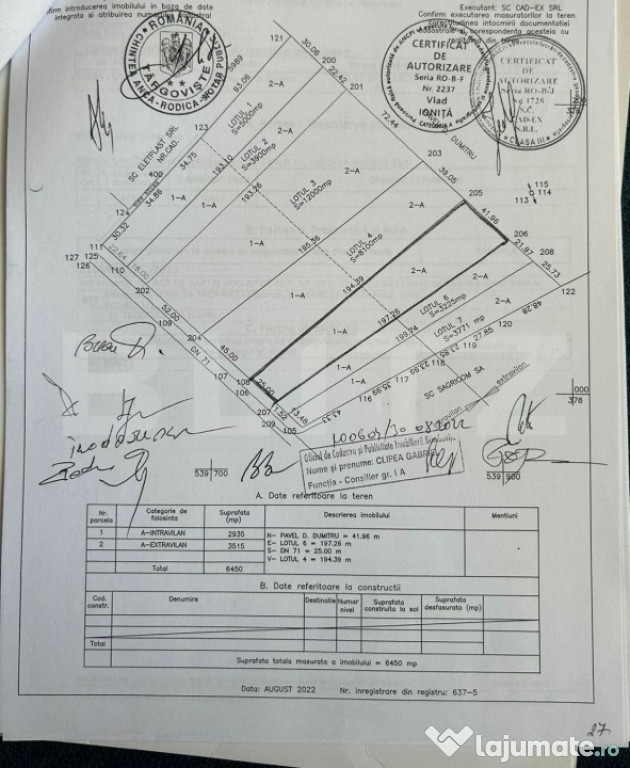 Executant: SC CAD-EX SRL
firm introducerea imobilului in baza de date
integrata si atribuirea
Confirm executarea masuratorilor la teren
ROMÂNIA
CHINTEA ANCA-RODICA-NOTAR PUBLIC
TÂRGOVIȘTE
CERTIFICAT
DE
AUTORIZARE
Seria RO-B-F
Nr. 2237
Vlad
IONIȚĂ
CATEGORIA
CERTIFICAT
DE
AUTORIZARE
Nr. 1728
S.C.
CAD-EX
S.R.L.
CLASA III
121
30.06
200
22.42
201
72.44
DUMITRU
203
39.05
205
41.96
206
21.97
208
25.73
122
115
114
113
S989
93.06
2-A
LOTUL 1
S=5000mp
2-A
LOTUL 2
S=3900mp
2-A
LOTUL 3
S=12000mp
2-A
LOTUL 4
S=8100mp
2-A
2-A
LOTUL 6
S=3225mp
LOTUL 7
S=3771 mp
SC ELETPLAST SRL
NR.CAD.
400
123
34.75
34.86
193.10
193.26
195.36
194.39
197.26
199.24
1-A
1-A
1-A
1-A
1-A
1-A
124
30.32
111
127 125
126
22.64
110
18.00
202
109
52.00
204
DN 71
107
45.00
108
106
25.00
207
209
1.52
13.48
105
43.33
116
35.99
117
118
119
27.85
120
48.28
SC SAGRICOM SA
intravilan
extravilan
000
378
539 700
539 900
Oficiul de Cadastru si Publicitate Imobiliara Dambovita
Nume si prenume: CLIPEA GABRIEL
Functia - Consilier gr. I A
A. Date referitoare la teren
Nr. parcela Categorie de folosinta Suprafata (mp) Descrierea imobilului Mentiuni
1 A-INTRAVILAN 2935 N- PAVEL D. DUMITRU = 41.96 m
2 A-EXTRAVILAN 3515 E- LOTUL 6 = 197.26 m
S- DN 71 = 25.00 m
V- LOTUL 4 = 194.39 m
Total 6450
B. Date referitoare la constructii
Cod. constr. Denumire Destinatie Numar nivel Suprafata construita la sol Suprafata desfasurata (mp)
Total
Suprafata totala masurata a imobilului = 6450 mp
Data: AUGUST 2022 Nr. inregistrare din registru: 637-5
27
lajumate.ro